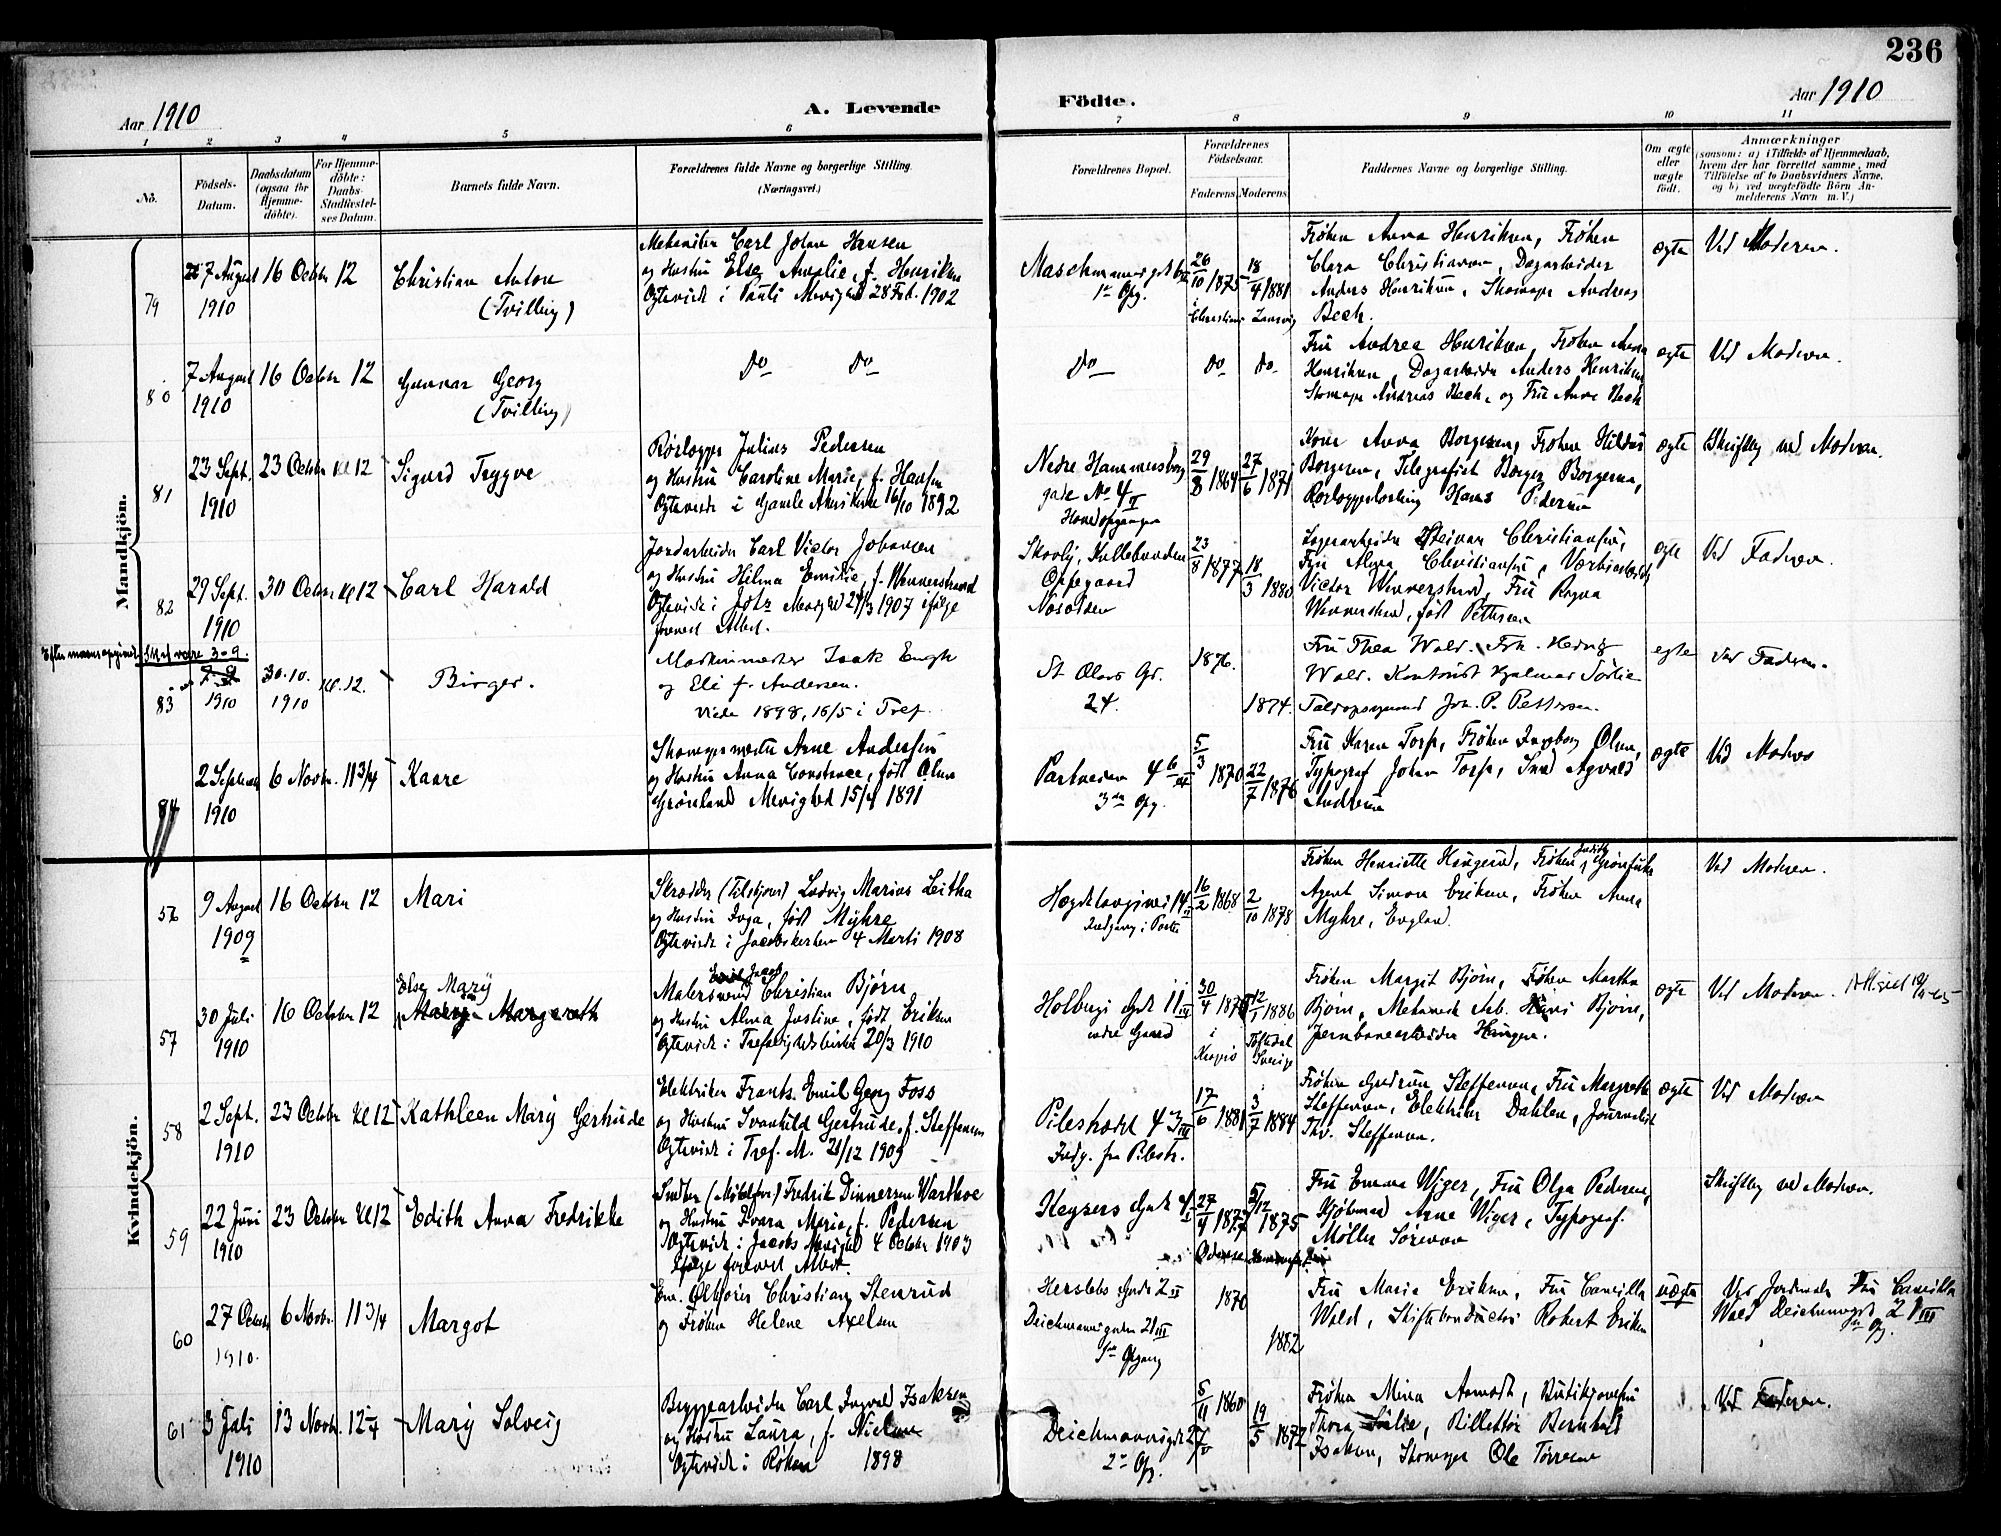 236
Aar 1910
A. Levende
Födte.
Aar 1910
1 2 3 4 5 6 7 8 9 10 11
No.
Födsels-Datum.
Daabsdatum (ogsaa for Hjemme-döbte).
For Hjemme-döbte: Daabs-Stadfæstel-ses Datum.
Barnets fulde Navn.
Forældrenes fulde Navne og borgerlige Stilling.
(Næringsvei.)
Forældrenes Bopæl.
Forældrenes Födselsaar.
Faderens Moderens
Faddernes Navne og borgerlige Stilling.
Om ægte eller uægte födt.
Anmærkninger
(saasom: a) i Tilfælde af Hjemmedaab, hvem der har forrettet samme, med Tilföielse af to Daabsvidners Navne, og b) ved uægtefödte Börn An-melderens Navn m. V.)
Mandkjön.
79
7 August 1910
16 October 12
Christian Anton
(Tvilling)
Carl Johan Hansen
og Hustru Else Amalie, f. Henriksen
Ægteviede i Pauli Menighed 28 Feb. 1902
1ste Opg.
26/10 1875
18/4 1881
Frøken Anna Henriksen, Frøken
Clara Christiansen, Dagarbeider
Anders Henriksen, Skomager Andreas
Bech.
ægte
Ved Moderen.
80
7 August 1910
16 October 12
Gunnar Georg
(Tvilling)
Do Do
Do
Do Do
Fru Andrea Henriksen, Frøken Anna
Henriksen, Dagarbeider Anders Henriksen
Skomager Andreas Bech, og Fru Anna Bech
ægte
Ved Moderen.
81
23 Sept. 1910
23 October Kl 12
Sigurd Trygve
Rørlægger Julius Pedersen
og Hustru Caroline Marie, f. Hansen
Ægteviede i Gamle Akerskirke 16/10 1892
Nedre Hammersborg
gade No 4 II
Hovedopgangen
29/8 1864
27/6 1871
Kone Anna Borgersen, Frøken Hildur
Borgersen, Telegrafist Borger Borgersen,
Rørlæggerlærling Hans Pedersen
ægte
Skriftlig ved Moderen.
82
29 Sept. 1910
30 October Kl 12
Carl Harald
Jordarbeider Carl Victor Johansen
og Hustru Hilma Emilie, f. Wennerstrand
Ægteviede i Menighed 1907 ifølge
forevist Attest.
Oppegaard
Nesodden
23/8 1877
18/3 1880
Lagerarbeider Christiansen,
Fru Christiansen,
Victor Wennerstrand, Fru Ragna
Wennerstrand, født Pettersen
ægte
Ved Faderen.
83
3-9.
1910
30.10. 1910
kl. 12.
Birger.
Maskinmester Isak Engh
og Eli f. Andersen.
Viede 1898, 16/5 i Tref.
St. Olavs Gd.
24.
1876.
1874.
Fru Thea Wold. Frk. Hedvig
Wold. Kontorist Hjalmar Sørlie
Joh. P. Pettersen.
egte
ved Faderen.
84
2 September 1910
6 Novbr. 11 3/4
Kaare
Skomagermester Arne Andersen
og Hustru Anna Constance, født Olsen
Grønland Menighed 15/4 1891
Parkveien
3die Opg.
5/3 1870
22/7 1876
Fru Karen Torp, Frøken Ingeborg Olsen,
Typograf Johan Torp, Agvald
Andersen
ægte
Ved Moderen
Kvindekjön.
56
9 August 1909
16 October 12
Mari
Skrædder (Tilskjærer) Ludvig Marius Leitha
og Hustru Inga, født Myhre
Ægteviede i Jacobskirken 4 Marti 1908
Indgang i Porten
16/2 1868
2/10 1878
Frøken Henriette Haugerud, Frøken Judith
Agent Simon Eriksen, Frøken Anna
Myhre, England.
Ved Moderen.
57
30 Juli 1910
16 October 12
Else Mary
Margareth
Malersvend Christian Bjørn
og Hustru Alma Justine, født Eriksen
Ægteviede i Trefoldighedskirken 20/3 1910
Holbergs Gade 11 III
indre Gaard
30/4
12/1 1886
Sverige
Frøken Margit Bjørn, Frøken Martha
Bjørn, Bjørn,
Jernbanearbeider Haugen.
ægte
Ved Moderen.
58
2 Sept. 1910
23 October Kl 12
Kathleen Mary Gertrude
Elektriker Frants Emil Georg Foss
og Hustru Svanhild Gertrude, f. Steffensen
Ægteviede i Tref. M. 21/12 1909
Pilestrædet 43 III
Indg. fra Pilestr.
17/6 1881
3/7 1884
Frøken Gudrun Steffensen, Fru Margrethe
Steffensen, Elektriker Dahlen, Journalist
Thv. Steffensen.
ægte
Ved Moderen
59
22 Juni 1910
23 October Kl 12
Edith Anna Fredrikke
Snedker Fredrik Dinnersen Warthoe
og Hustru Marie, f. Pedersen
Ægteviede i Jacobs Menighed 4 October 1903
Ifølge forevist Attest.
Keysers Gade
27/4 1877
5/12 1875
Odense
Fru Emma Wiger, Fru Olga Pedersen,
Kjøbmand Arne Wiger, Typograf
Møller Sørensen
Skriftlig ved Moderen.
60
27 October 1910.
6 Novbr. 11 3/4
Margot
Christian Stenrud
og Frøken Helene Axelsen
Herslebs Gade 2 II
Deichmannsgaden 21 III
Opgang
1870
1882
Fru Maria Eriksen, Fru Camilla
Wold, Robert Eriksen
uægte
Ved Jordemoder Fru Camilla
Wold Deichmannsgd 21 III
Opg.
61
3 Juli 1910
13 Novbr. 12 1/4
Mary Solveig
Bryggearbeider Carl Ingvald Isaksen
og Hustru Laura, f. Nielsen
Ægteviede i Røken 1898
Deichmannsgd 27 IV
2den Opg.
5/11 1860
19/5 1872
Frøken Mina Aamodt,
Thora Billettør Bernhard
Isaksen, Skomager Ole Tørresen
Ved Faderen.